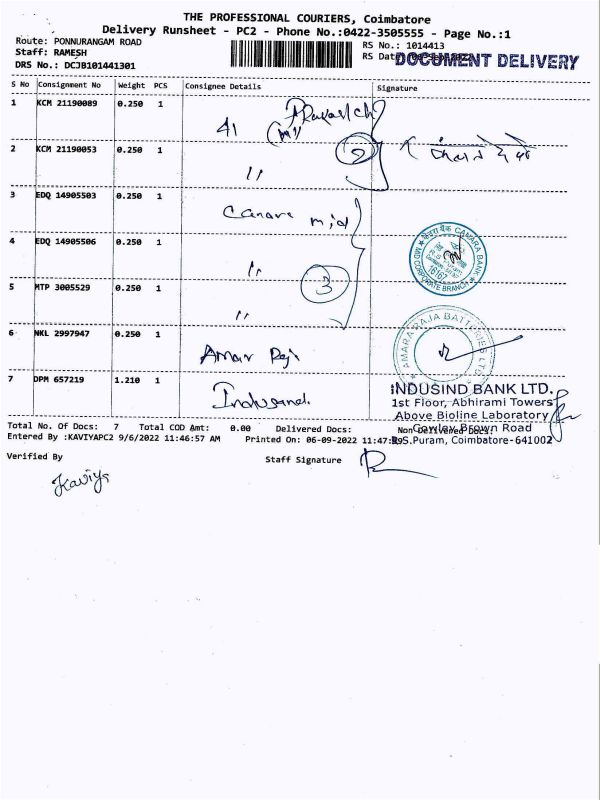 THE PROFESSIONAL COURIERS, Coimbatore
Delivery Runsheet - PC2 - Phone No.:0422-3505555 - Page No.:1
Route: PONNURANGAM ROAD
Staff: RAMESH
DRS No.: DCJB101441301
RS No.: 1014413
RS Dat
DOCUMENT DELIVERY
S No Consignment No Weight PCS Consignee Details Signature
1 KCM 21190089 0.250 1
41
2 KCM 21190053 0.250 1
2
"
3 EDQ 14905503 0.250 1
Canara mid
4 EDQ 14905506 0.250 1
"
3
CANARA BANK
MID CORPORATE BRANCH
16167
5 MTP 3005529 0.250 1
"
6 NKL 2997947 0.250 1
Amar Raja
AMARA RAJA BATTERIES LTD
7 DPM 657219 1.210 1
Indusand
INDUSIND BANK LTD.
1st Floor, Abhirami Towers
Above Bioline Laboratory
Cowley Brown Road
R.S.Puram, Coimbatore-641002
Total No. Of Docs: 7 Total COD Amt: 0.00 Delivered Docs: Non Delivered Docs:
Entered By :KAVIYAPC2 9/6/2022 11:46:57 AM Printed On: 06-09-2022 11:47:
Verified By Staff Signature
Kaviya